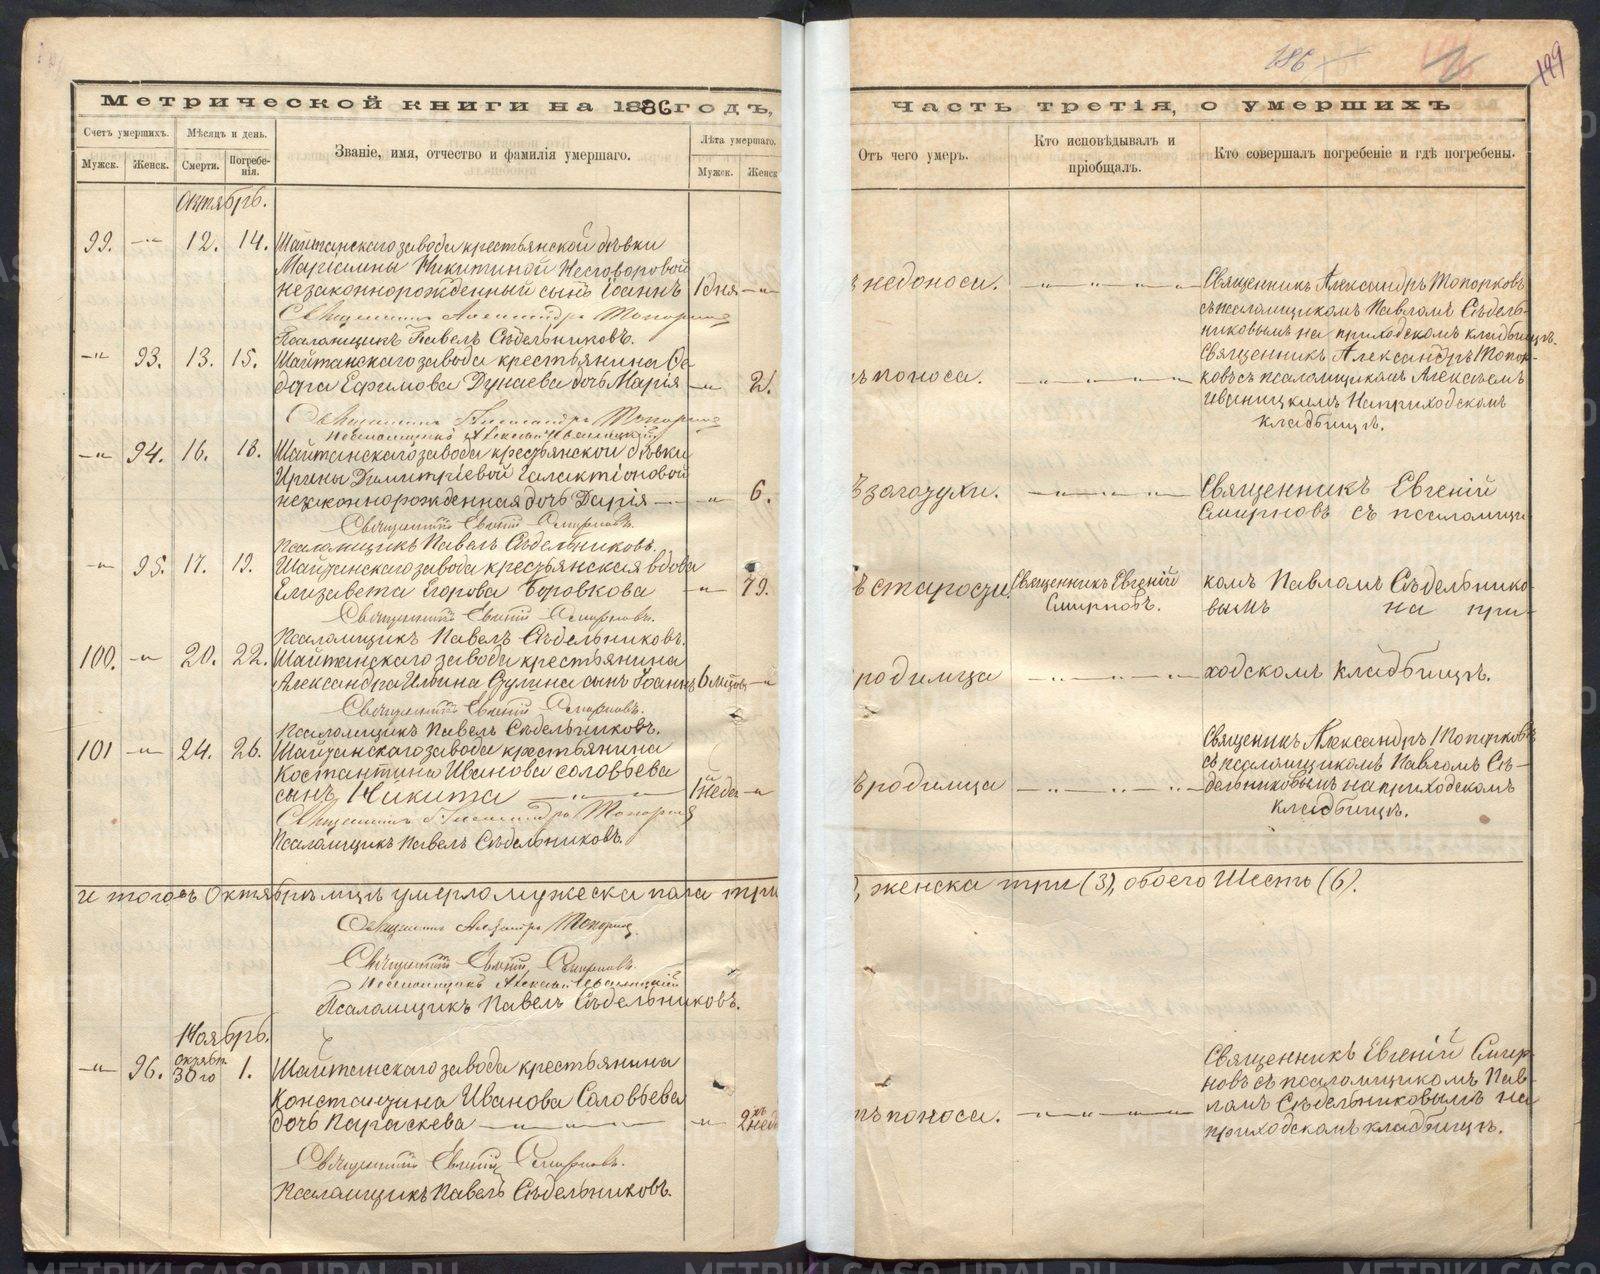 186
199
Метрической книги на 1886 годъ,
Часть третія, о умершихъ
Счетъ умершихъ.
Мѣсяцъ и день.
Званіе, имя, отчество и фамилія умершаго.
Лѣта умершаго.
Мужск.
Женск.
Смерти.
Погребе-
нія.
Мужск.
Женск
Отъ чего умеръ.
Кто исповѣдывалъ и
пріобщалъ.
Кто совершалъ погребеніе и гдѣ погребены.
Октябрь.
99. —"— 12. 14. Шайтанскаго завода крестьянской дѣвки
Никитиной Несговоровой
незаконнорожденный сынъ Іоаннъ 1 дня —"—
недоноса.
Священникъ Александръ Топорковъ
Псаломщикъ Павелъ Сѣдельниковъ.
Священникъ Александръ Топорковъ
съ псаломщикомъ Павломъ Сѣдель-
никовымъ на приходскомъ кладбищѣ.
—"— 93. 13. 15. Шайтанскаго завода крестьянина Ѳе-
дора Ефимова Дунаева дочь Марія —"— 2.
поноса.
Священникъ Александръ Топорковъ
Псаломщикъ Алексѣй Иваницкій
Священникъ Александръ Топор-
ковъ съ псаломщикомъ Алексѣемъ
Иваницкимъ на приходскомъ
кладбищѣ.
—"— 94. 16. 18. Шайтанскаго завода крестьянской дѣвки
Ирины Димитріевой Галактіоновой
незаконнорожденная дочь Дарія —"— 6.
Священникъ Евгеній Смирновъ.
Псаломщикъ Павелъ Сѣдельниковъ.
Священникъ Евгеній
Смирновъ съ псаломщи-
—"— 95. 17. 19. Шайтанскаго завода крестьянская вдова
Елизавета Егорова Боровкова —"— 79.
старости.
Священникъ Евгеній
Смирновъ.
комъ Павломъ Сѣдельнико-
вымъ на при-
Священникъ Евгеній Смирновъ.
Псаломщикъ Павелъ Сѣдельниковъ.
100. —"— 20. 22. Шайтанскаго завода крестьянина
Александра Ильина сынъ Іоаннъ 6 мѣсяц. —"—
родимца
ходскомъ кладбищѣ.
Священникъ Евгеній Смирновъ.
Псаломщикъ Павелъ Сѣдельниковъ.
101 —"— 24. 26. Шайтанскаго завода крестьянина
Костантина Иванова Соловьева
сынъ Никита 1 недѣл —"—
родимца
Священникъ Александръ Топорковъ
Псаломщикъ Павелъ Сѣдельниковъ.
Священикъ Александръ Топорковъ
съ псаломщикомъ Павломъ Сѣ-
дельниковымъ на приходскомъ
кладбищѣ.
Итого въ Октябрѣ мцѣ умерло мужеска пола три
, женска три (3), обоего Шесть (6).
Священникъ Александръ Топорковъ
Священникъ Евгеній Смирновъ.
Псаломщикъ Алексѣй Иваницкій
Псаломщикъ Павелъ Сѣдельниковъ.
Ноябрь.
—"— 96. Октябр. 30го 1. Шайтанскаго завода крестьянина
Константина Иванова Соловьева
дочь Параскева —"— 2 хъ нед
поноса.
Священникъ Евгеній Смир-
новъ съ псаломщикомъ Пав-
ломъ Сѣдельниковымъ на
приходскомъ кладбищѣ.
Священникъ Евгеній Смирновъ.
Псаломщикъ Павелъ Сѣдельниковъ.